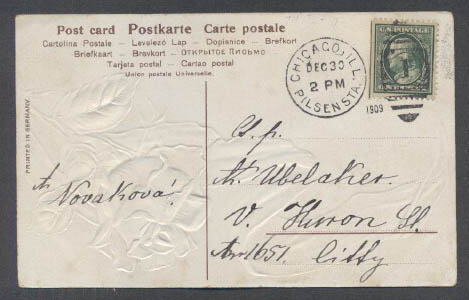 Post card Postkarte Carte postale
Cartolina Postale – Levelező Lap – Dopisnice – Brefkort
Briefkaart – Brevkort – ОТКРЫТОЕ ПИСЬМО
Tarjeta postal – Cartao postal
Union postale Universelle.
PRINTED IN GERMANY.
CHICAGO, ILL.
DEC 30
2 PM
PILSEN STA.
1909
U.S. POSTAGE
Nováková!
C. p.
Ubelaker.
V. Huron St.
1651. City